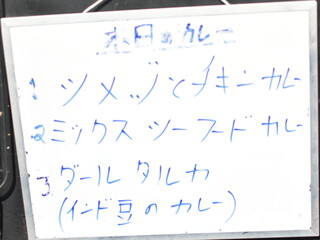 本日のカレー
1. シメジとチキン カレー
2 ミックス シーフード カレー
3 ダール タルカ
(インド豆の カレー)